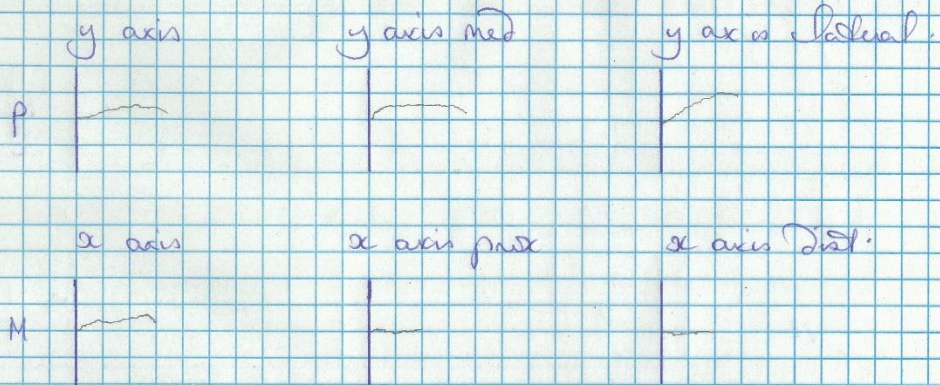 y axis y axis med y axis lateral.
P
x axis x axis prox x axis dist.
M